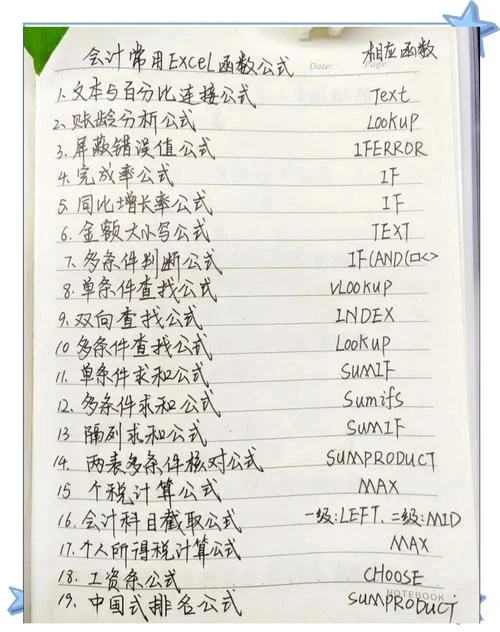 会计常用Excel函数公式 相应函数
Date: Page:
1.文本与百分比连接公式 Text
2.账龄分析公式 LOOKUP
3.屏蔽错误值公式 IFERROR
4.完成率公式 IF
5.同比增长率公式 IF
6.金额大小写公式 TEXT
7.多条件判断公式 IF(AND(口<>
8.单条件查找公式 VLOOKUP
9.双向查找公式 INDEX
10多条件查找公式 Lookup
11.单条件求和公式 SUMIF
12.多条件求和公式 Sumifs
13 隔列求和公式 SUMIF
14.两表多条件核对公式 SUMPRODUCT
15 个税计算公式 MAX
16.会计科目截取公式 一级:LEFT.二级:MID
17.个人所得税计算公式 MAX
18.工资条公式 CHOOSE
NOTEBOOK
19.中国式排名公式 SUMPRODUCT